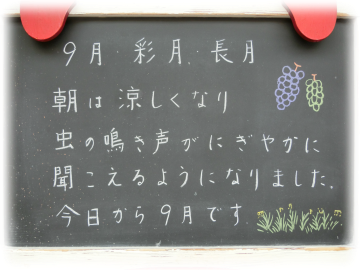 9月・彩月・長月
朝は涼しくなり
虫の鳴き声がにぎやかに
聞こえるようになりました.
今日から9月です.